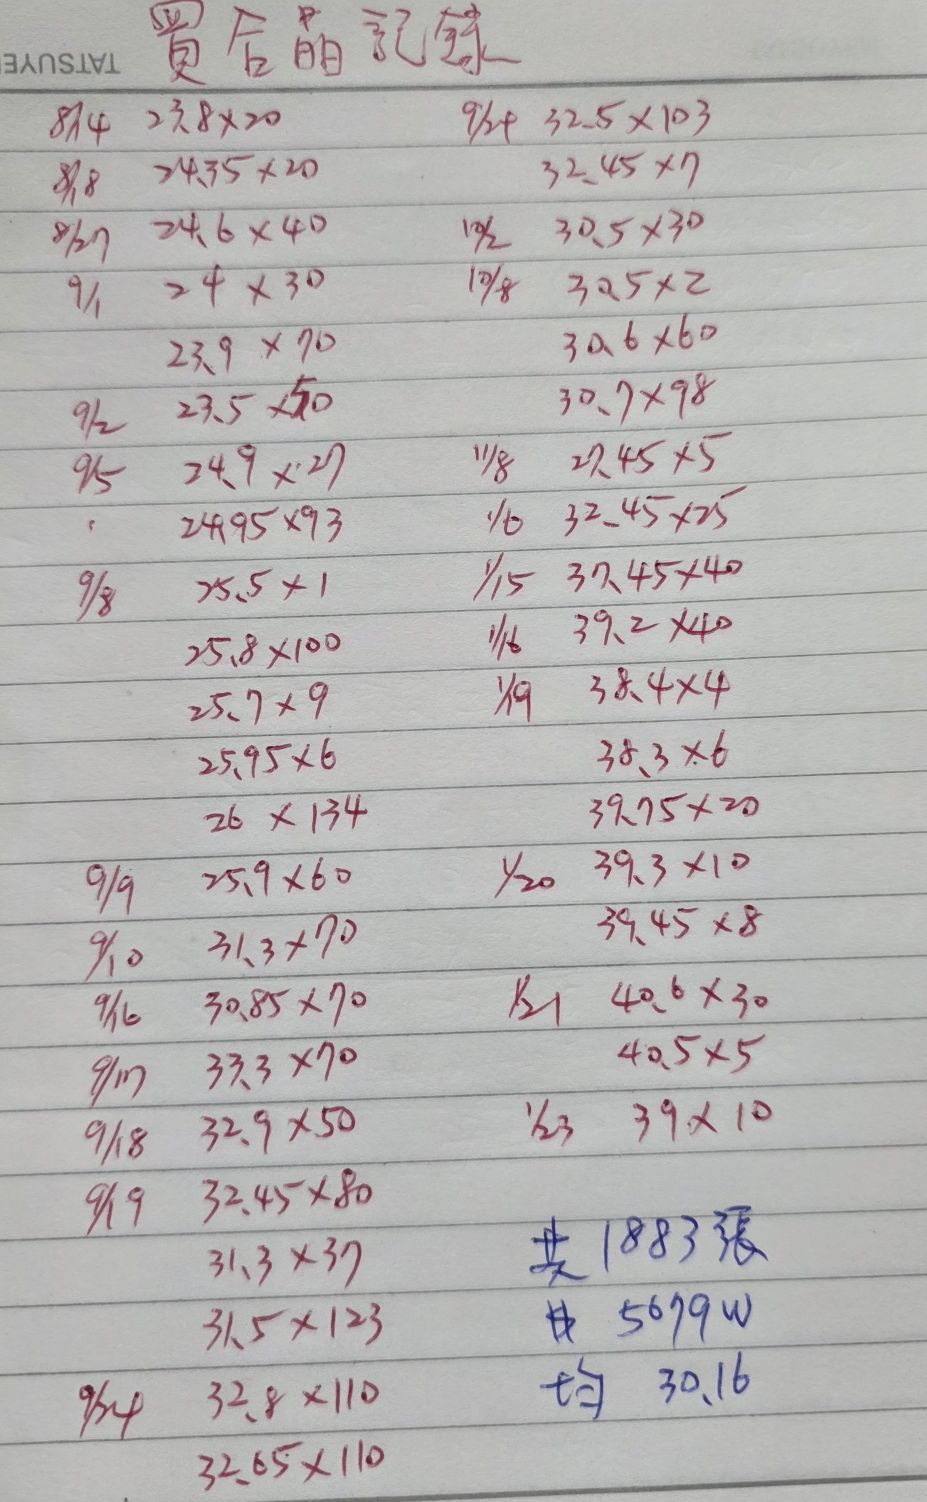 TATSUYE
買合晶記錄
8/14 23.8×20
8/18 24.35×20
8/27 24.6×40
9/1 24×30
23.9×70
9/2 23.5×50
9/5 24.9×27
" 24.95×93
9/8 25.5×1
25.8×100
25.7×9
25.95×6
26×134
9/9 25.9×60
9/10 31.3×70
9/16 30.85×70
9/17 33.3×70
9/18 32.9×50
9/19 32.45×80
31.3×37
31.5×123
9/24 32.8×110
32.65×110
9/24 32.5×103
32.45×7
10/2 30.5×30
10/8 30.5×2
30.6×60
30.7×98
11/8 27.45×5
1/6 32.45×25
1/15 37.45×40
1/16 39.2×40
1/19 38.4×4
38.3×6
39.75×20
1/20 39.3×10
39.45×8
1/21 40.6×30
40.5×5
1/23 39×10
共 1883張
共 5679W
均 30.16